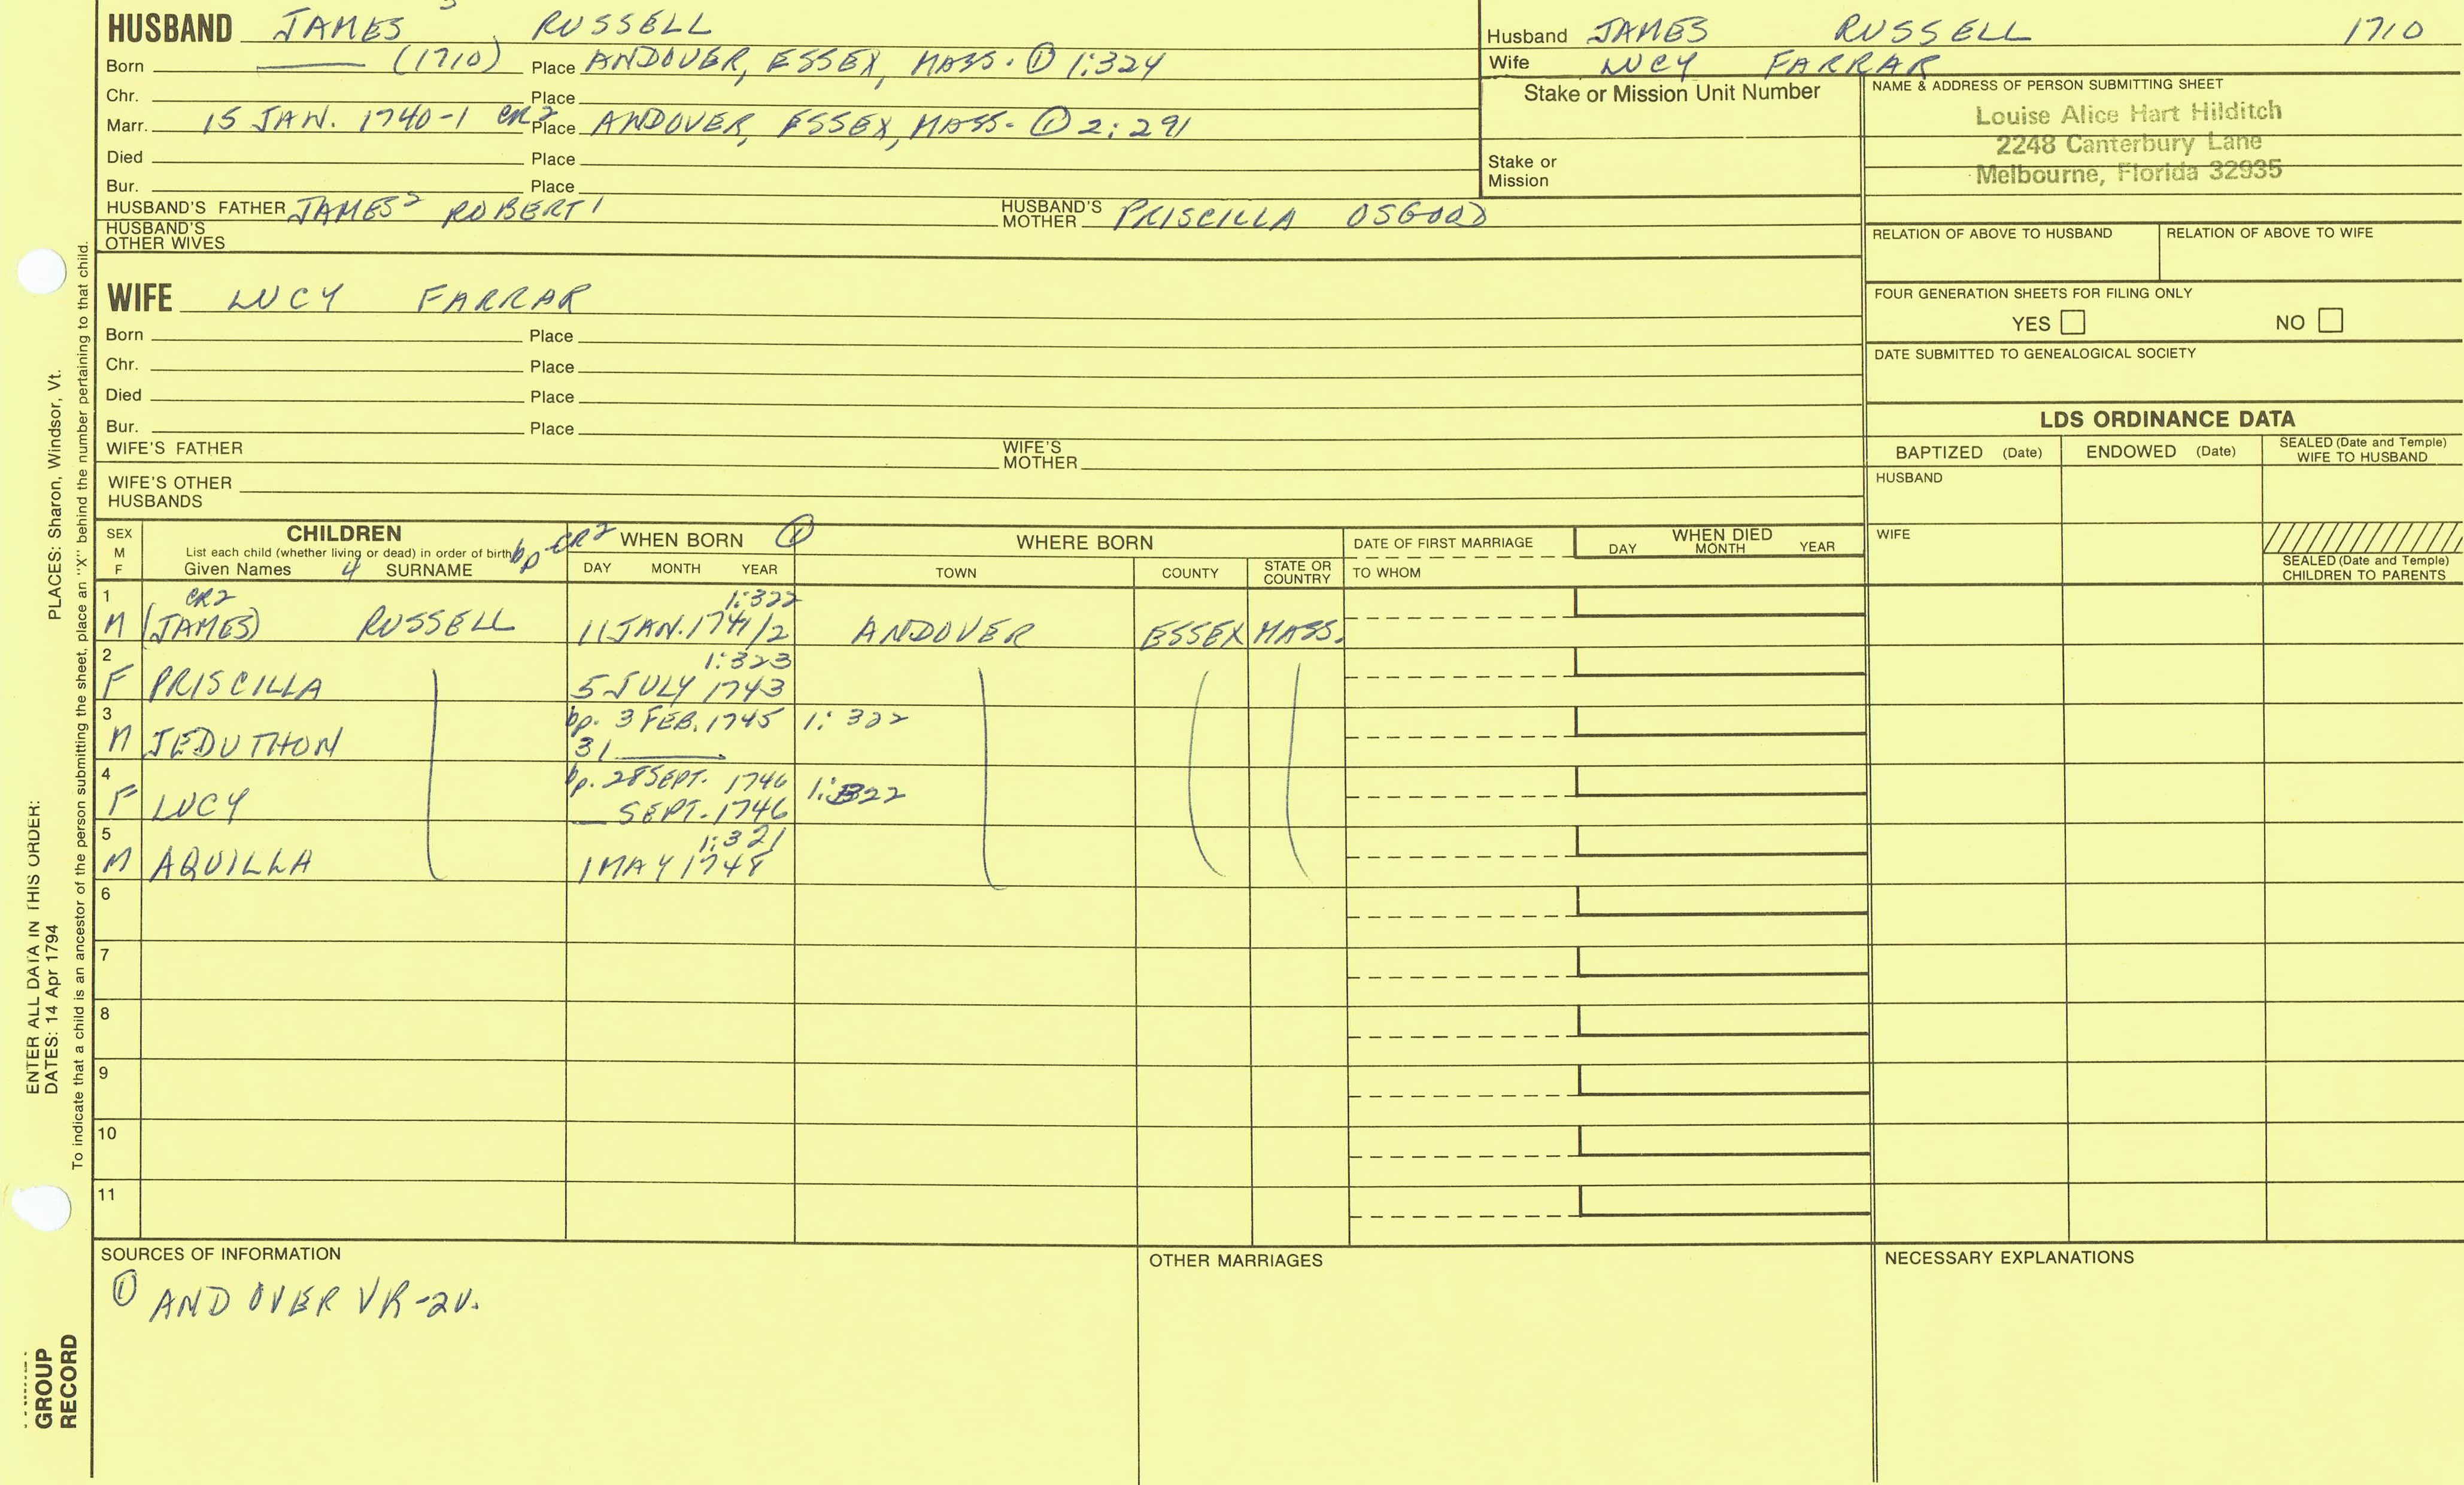 HUSBAND JAMES 3 RUSSELL
Born ——— (1710) Place ANDOVER, ESSEX, MASS. ① 1:324
Chr. Place
Marr. 15 JAN. 1740-1 CR2 Place ANDOVER, ESSEX, MASS. ① 2:291
Died Place
Bur. Place
HUSBAND'S FATHER JAMES 2 ROBERT 1 HUSBAND'S MOTHER PRISCILLA OSGOOD
HUSBAND'S OTHER WIVES
WIFE LUCY FARRAR
Born Place
Chr. Place
Died Place
Bur. Place
WIFE'S FATHER WIFE'S MOTHER
WIFE'S OTHER HUSBANDS
Husband JAMES RUSSELL 1710
Wife LUCY FARRAR
Stake or Mission Unit Number
Stake or Mission
NAME & ADDRESS OF PERSON SUBMITTING SHEET
Louise Alice Hart Hilditch
2248 Canterbury Lane
Melbourne, Florida 32935
RELATION OF ABOVE TO HUSBAND RELATION OF ABOVE TO WIFE
FOUR GENERATION SHEETS FOR FILING ONLY
YES NO
DATE SUBMITTED TO GENEALOGICAL SOCIETY
LDS ORDINANCE DATA
BAPTIZED (Date) ENDOWED (Date) SEALED (Date and Temple) WIFE TO HUSBAND
HUSBAND
WIFE
SEALED (Date and Temple) CHILDREN TO PARENTS
SEX M F
CHILDREN
List each child (whether living or dead) in order of birth
Given Names 4 SURNAME
bp-CR2 WHEN BORN ①
DAY MONTH YEAR
WHERE BORN
TOWN COUNTY STATE OR COUNTRY
DATE OF FIRST MARRIAGE
TO WHOM
WHEN DIED
DAY MONTH YEAR
1 CR2 1:322
M (JAMES) RUSSELL 11 JAN. 1741/2 ANDOVER ESSEX MASS.
2 1:323
F PRISCILLA 5 JULY 1743
3 bp. 3 FEB. 1745 1:322
M JEDUTHON 31
4 bp. 28 SEPT. 1746 1:322
F LUCY SEPT. 1746
5 1:321
M AQUILLA 1 MAY 1748
6
7
8
9
10
11
SOURCES OF INFORMATION
① ANDOVER VR-2V.
OTHER MARRIAGES
NECESSARY EXPLANATIONS
ENTER ALL DATA IN THIS ORDER:
DATES: 14 Apr 1794 PLACES: Sharon, Windsor, Vt.
To indicate that a child is an ancestor of the person submitting the sheet, place an "X" behind the number pertaining to that child.
GROUP
RECORD